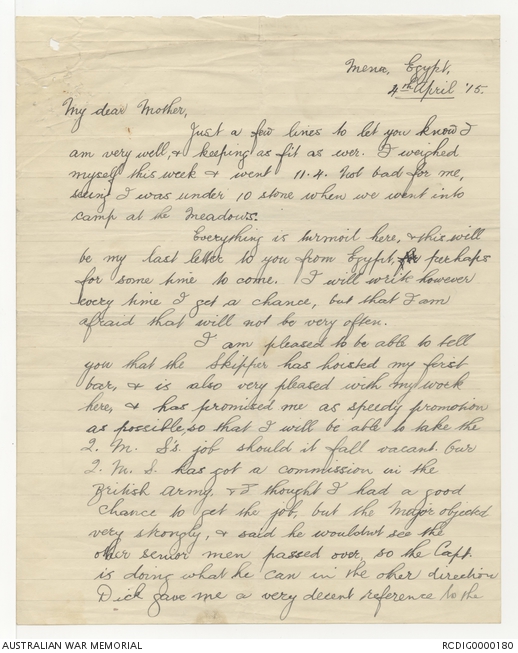 Mena, Egypt,
4th April '15.
My dear Mother,
Just a few lines to let you know I
am very well, & keeping as fit as ever. I weighed
myself this week & went 11.4. Not bad for me,
seeing I was under 10 stone when we went into
camp at the Meadows.
Everything is turmoil here, & this will
be my last letter to you from Egypt, for perhaps
for some time to come. I will write however
every time I get a chance, but that I am
afraid that will not be very often.
I am pleased to be able to tell
you that the Skipper has hoisted my first
bar, & is also very pleased with my work
here, & has promised me as speedy promotion
as possible, so that I will be able to take the
Q. M. S's. job should it fall vacant. Our
Q. M. S. has got a commission in the
British Army, & I thought I had a good
chance to get the job, but the Major objected
very strongly, & said he wouldn't see the
other senior men passed over, so the Capt.
is doing what he can in the other direction
Dick gave me a very decent reference to the
AUSTRALIAN WAR MEMORIAL
RCDIG0000180